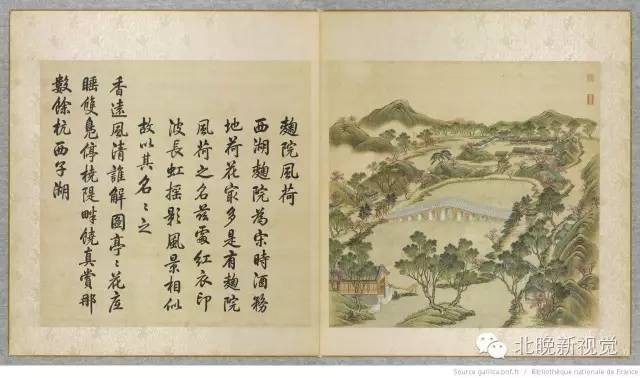 麯院風荷
西湖麯院為宋時酒務
地荷花冣多是有麯院
風荷之名茲處紅衣印
波長虹摇影風景相似
故以其名〻之
香遠風清誰解圖亭〻花底
睡雙鳧停橈隄畔饒真賞那
數餘杭西子湖
北晚新视觉
Source gallica.bnf.fr / Bibliothèque nationale de France